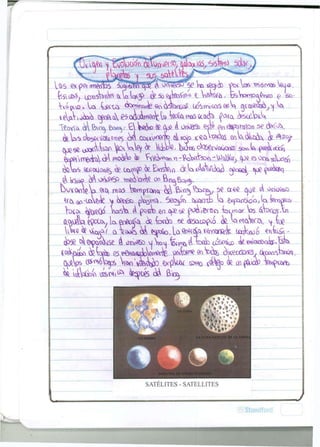 Origen y Evolución del universo, galaxias, sistema solar,
planetas y sus satélites
Los experimentos sugieren que el universo se ha regido por las mismas leyes
físicas, constantes a lo largo de su extensión e historia. Es homogéneo e iso-
trópico. La fuerza dominante en distancias cósmicas es la gravedad, y la
relatividad general es actualmente la teoría mas exacta para describirla.
Teoría del Big Bang: El hecho de que el universo esté en expansión se deriva
de las observaciones del corrimiento al rojo realizadas en la década de
que se cuantifican por la ley de Hubble. Dichas observaciones son la predicción
experimental del modelo de Friedmann-Robertson-Walker, que es una solución
de las ecuaciones de campo de Einstein de la relatividad general, que predicen
el inicio del universo mediante un Big Bang.
Durante la era mas temprana del Big Bang, se cree que el universo
era un caliente y denso plasma. Según avanzó la expansión, la tempera-
tura hasta el punto en que se pudieron formar los átomos. En
aquella época, la energía de fondo se desacopló de la materia y fue
libre de viajar a través del espacio. La energía remanente continuó enfrián-
dose al expandirse el universo y hoy forma el fondo cósmico de microondas. Esta
radiación de fondo es remarcablemente uniforme en todas direcciones, circunstancia
que los cosmólogos han intentado explicar como reflejo de un periodo temprano
de inflación cósmica después del Big
SATÉLITES - SATELLITES
Standford